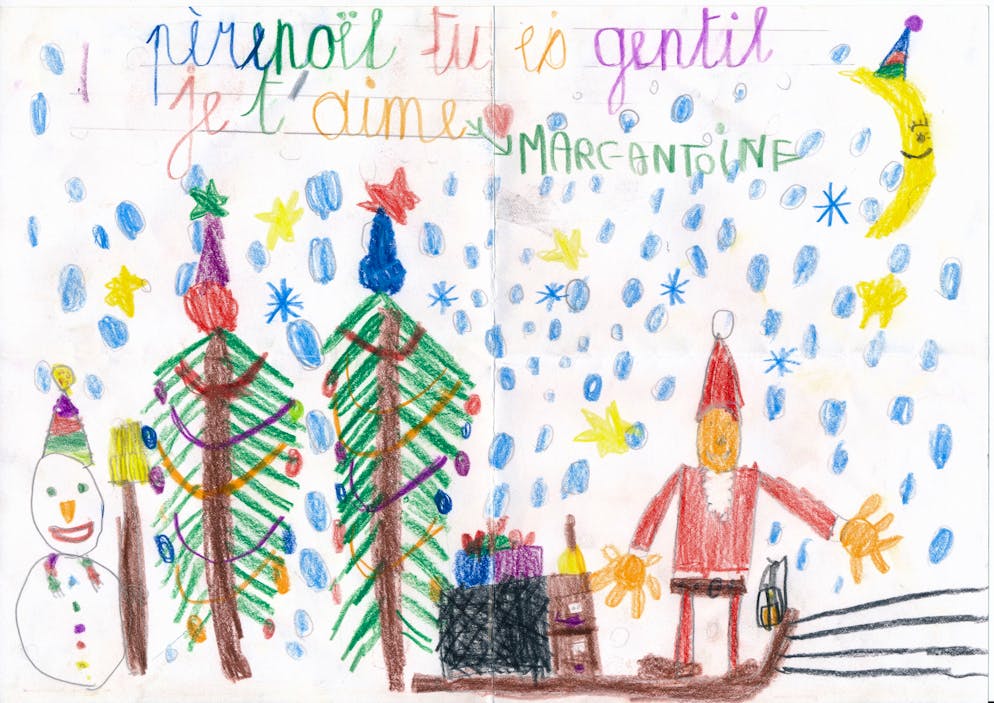 père noël tu es gentil
je t'aime
MARC-ANTOINE